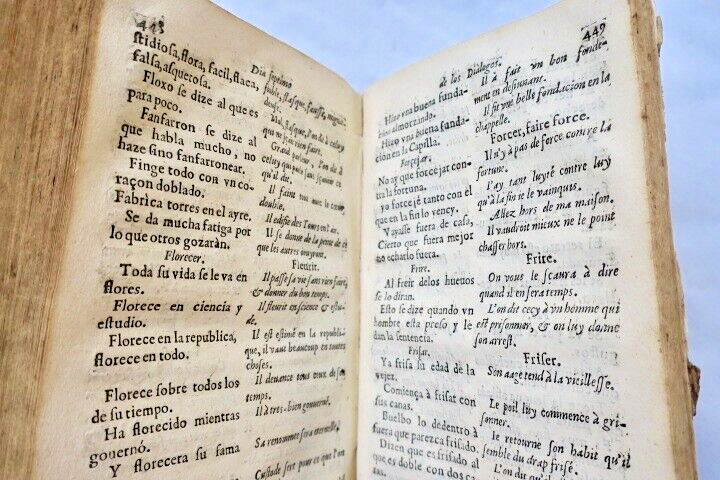 448
Dia septimo
stidiosa, flora, facil, flaca,
falsa, asquerosa.
Floxo se dize al que es
para poco.
Fanfarron se dize al
que habla mucho, no
haze sino fanfarronear.
Finge todo con vn co-
raçon doblado.
Fabrica torres en el ayre.
Se da mucha fatiga por
lo que otros gozaràn.
Florecer.
Toda su vida se leva en
flores.
Florece en ciencia y
estudio.
Florece en la republica,
florece en todo.
Florece sobre todos los
de su tiempo.
Ha florecido mientras
gouernó.
Y florecera su fama
qu'il die.
Il faint tout avec le cœur
double.
Il edifie des Tours en l'air.
Il se donne de la peine de ce
que les autres iouyront.
Fleurir.
Il passe sa vie sans rien faire,
& donner du bon temps.
Il fleurit en science & estu-
de.
Il est estimé en la republi-
que, il vaut beaucoup en toutes
choses.
Il deuance tous ceux de son
temps.
Il a tres-bien gouuerné.
Sa renommée sera eternelle.
449
de los Dialogos.
Hizo vna buena funda-
cion almorzando.
Hizo vna buena funda-
ción en la Capilla.
Forcejar.
No ay que forcejar con-
tra la fortuna.
yo forcejè tanto con el
que en la fin lo vency.
Vayase fuera de casa,
Cierto que fuera mejor
no echarlo fuera.
Frire.
Al freir delos hueuos
se lo diran.
Esto se dize quando vn
hombre esta preso y le
dan la sentencia.
Frisar.
Ya frisa su edad de la
vejez.
Comiença à frisat con
sus canas.
Buelbo lo dedentro à
fuera que parezca frisado.
Dizen que es frisado al
que es doble con dos ca-
Il a fait vn bon fonde-
ment en desieunant.
Il fit vne belle fondacion en la
chappelle.
Forcer, faire force.
Il n'y à pas de force contre la
fortune.
I'ay tant luyté contre luy
qu'à la fin ie le vainquis.
Allez hors de ma maison.
Il vaudroit mieux ne le point
chasser hors.
Frire.
On vous le sçaura à dire
quand il en sera temps.
L'on dit cecy à vn homme qui
est prisonner, & on luy donne
son arrest.
Friser.
Son aage tend à la vieillesse.
Le poil luy commence à gri-
sonner.
Ie retourne son habit qu'il
semble du drap frisé.